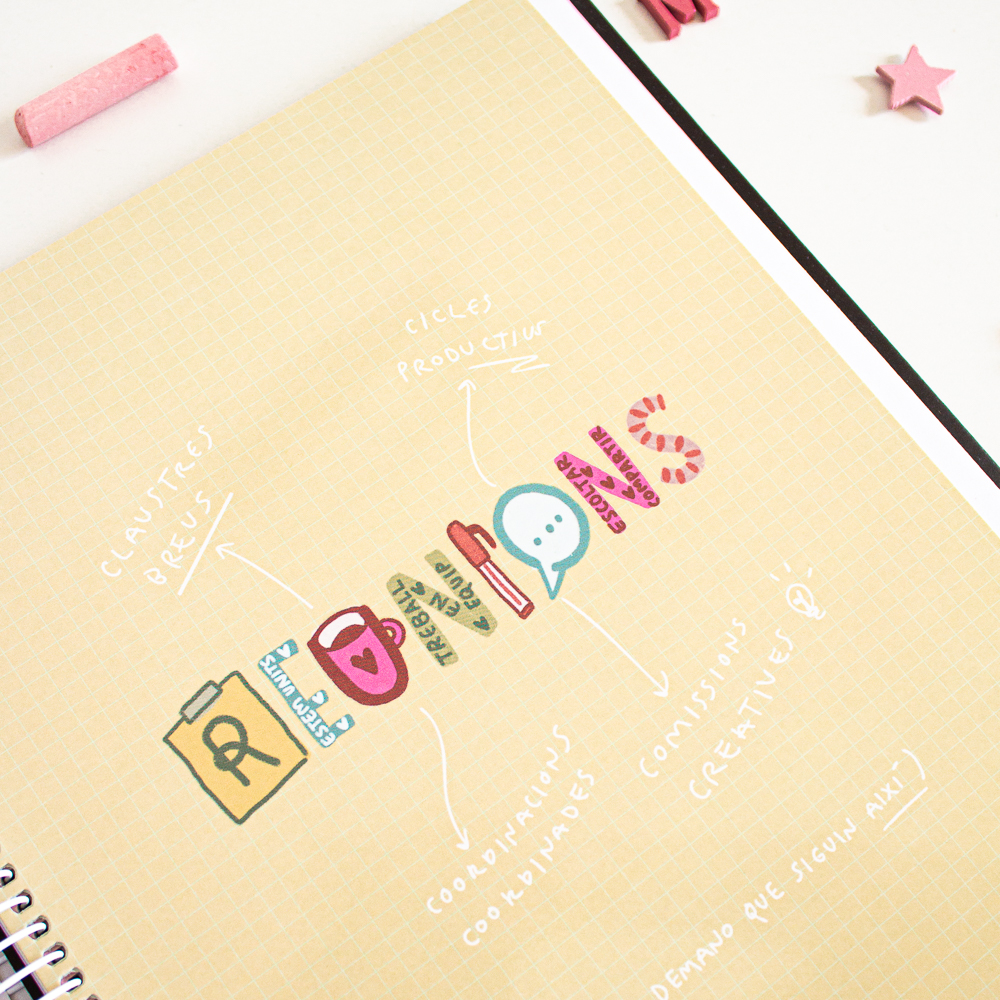 CICLES
PRODUCTIUS
CLAUSTRES
BREUS
REUNIONS
ESTEM UNITS
TREBALL
EN
EQUIP
ESCOLTAR
COMPARTIR
COMISSIONS
CREATIVES
COORDINACIONS
COORDINADES
DEMANO QUE SIGUIN AIXÍ)